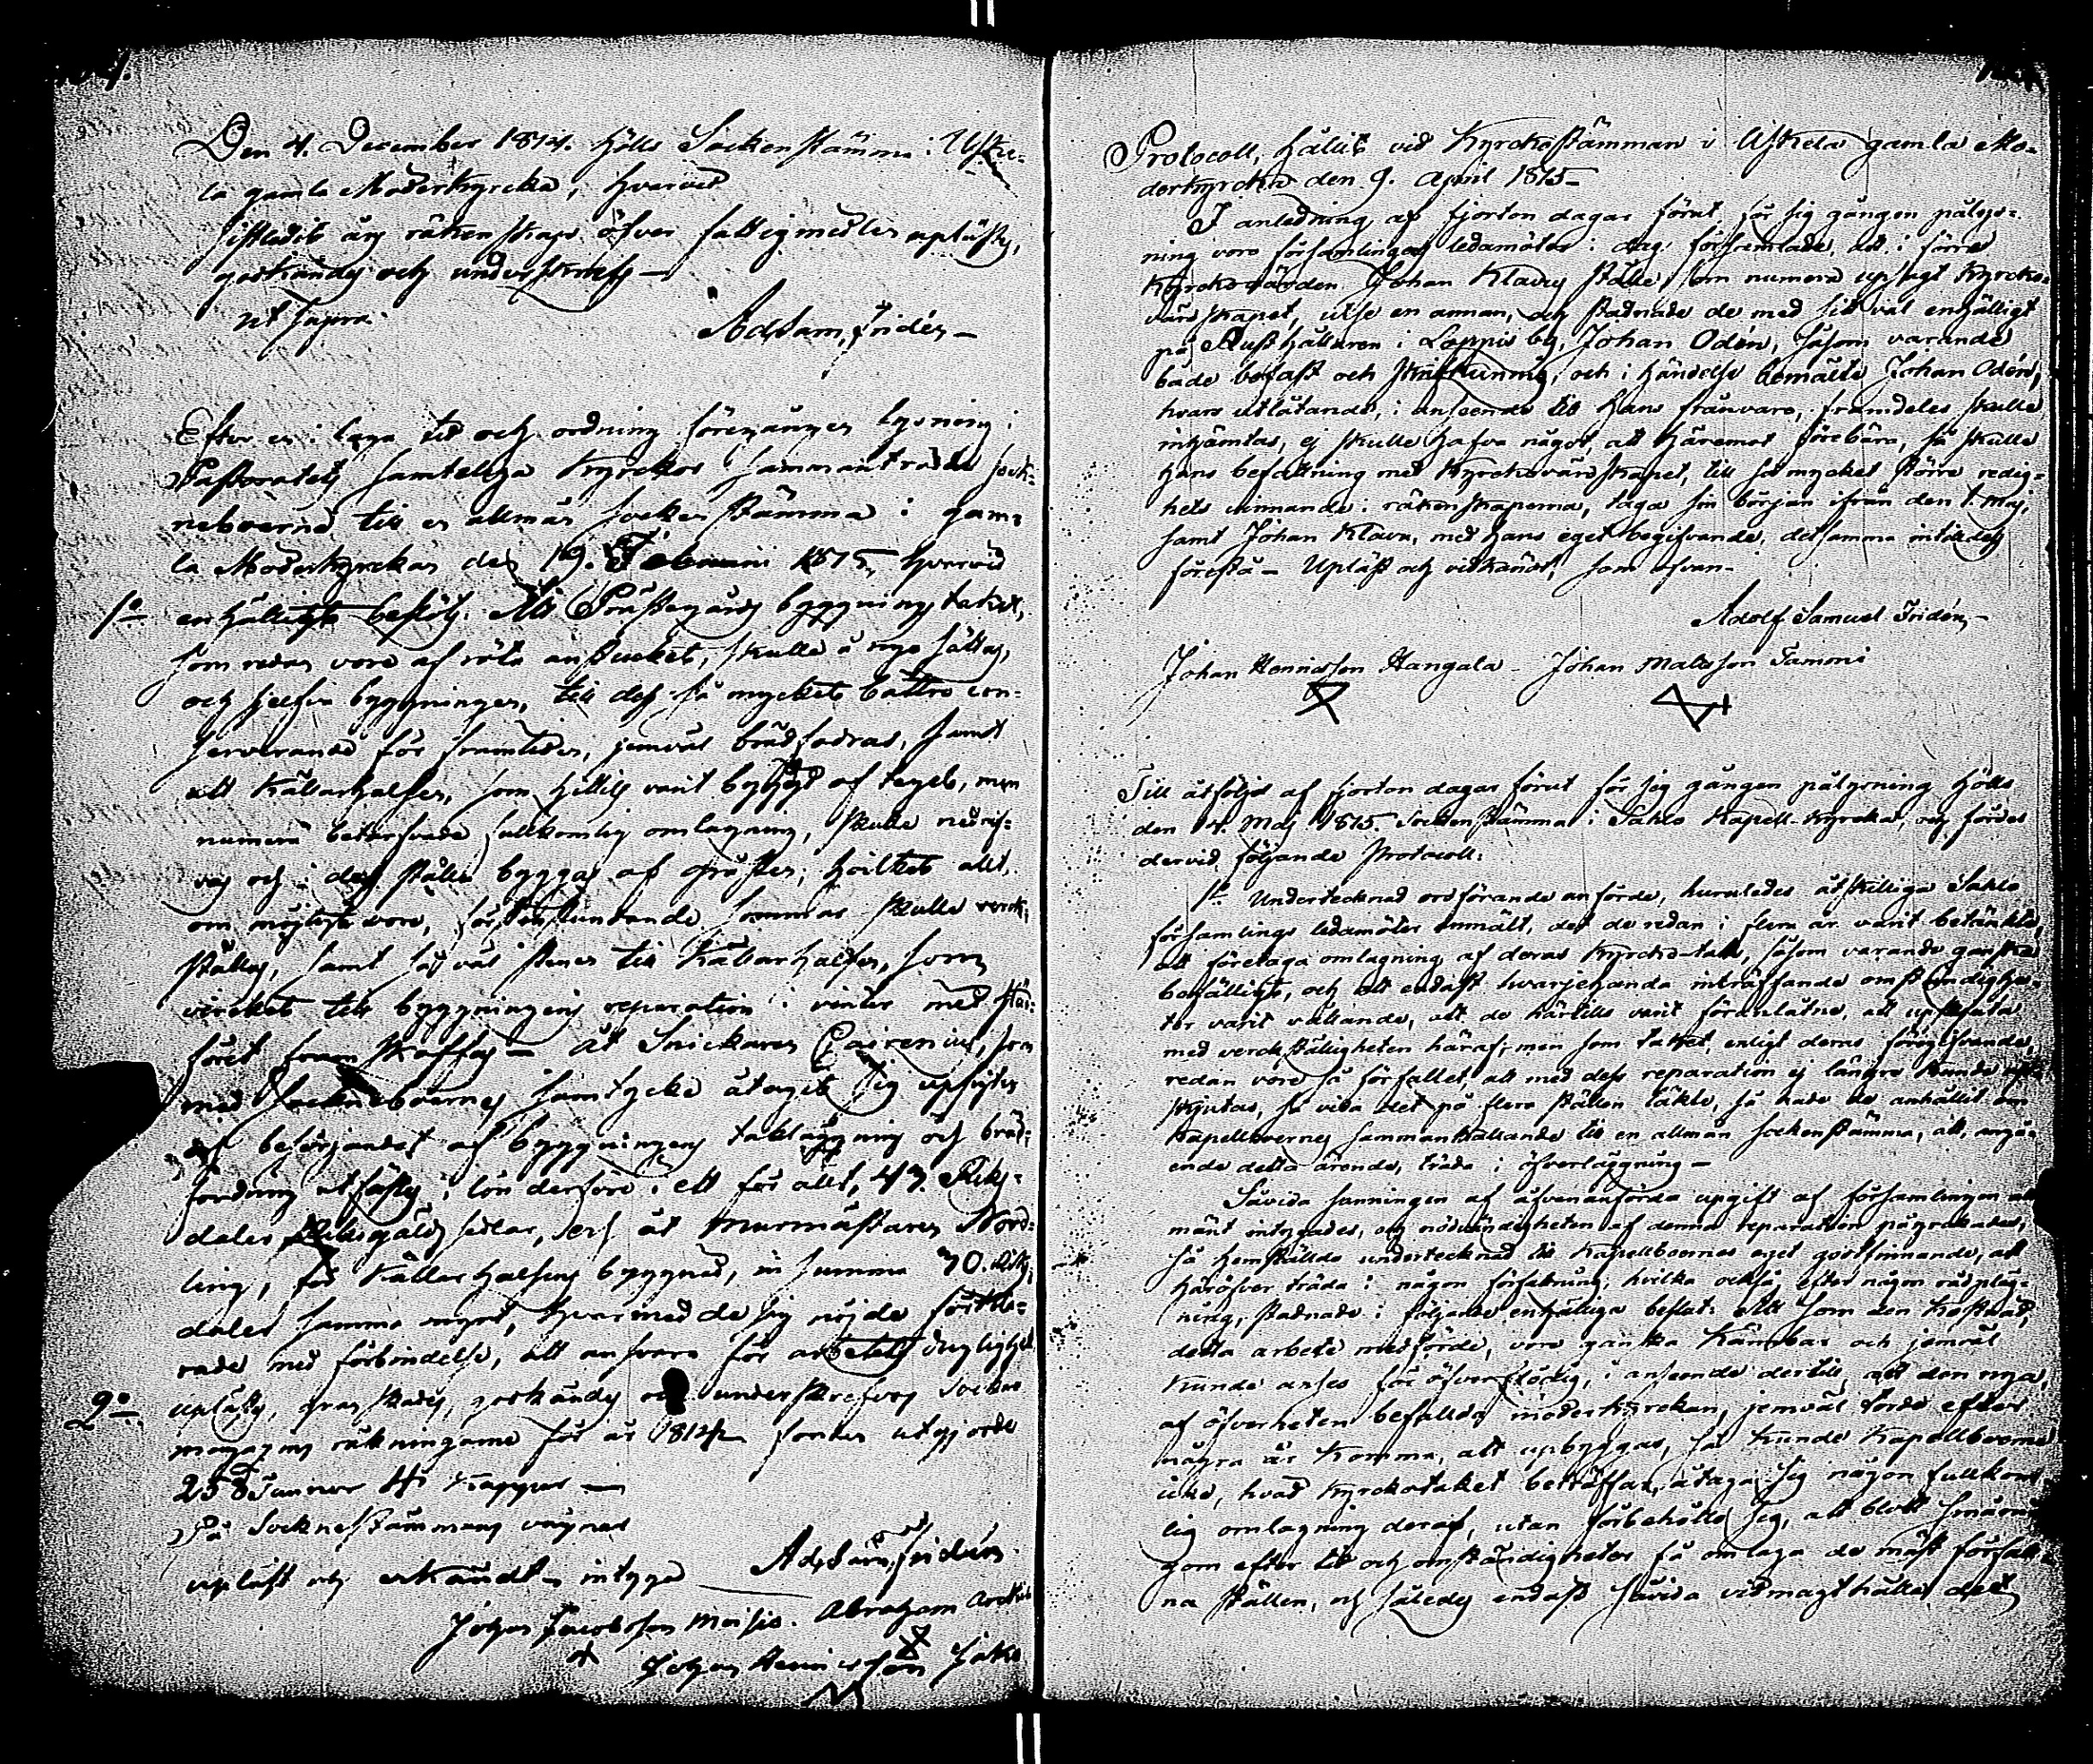 Den 4. December 1814. hölls Sockenstämma i Uske-
la gamla Moderkyrcka, hvarvid
sistledit års räkenskap öfver fattigmedlen uplästes,
godkändes och underskrefs —
ut supra.
Ad. Sam. Indén —
Efter en i laga tid och ordning föregången lysning i
Pastoratets samtelliga Kyrckor sammanträdde sock-
neboerne till en allmän sockenstämma i gam-
la Moderkyrckan den 19. Februarii 1815, hvarvid
1o enhälligt beslöts: Att Prästegårds byggnings taket,
som redan vore af röta anstucket, skulle å nyo sättas,
och sielfva byggningen, till dess så mycket bättre con-
serverande för framtiden, jemväl brädfodras, samt
att Källarhalsen, som hittils varit byggd af tegel, men
numera betarfvade fullkomlig omlagning, skulle nedrif-
vas och i dess ställe byggas af gråsten; hvilket allt,
om möjligt vore, förstinstundande sommar skulle verck-
ställas, samt så väl stenen till Källarhalsen, som
vircket till byggningens reparation i vinter med slä-
föret framskaffas — Åt Snickaren Cairenius, som
med Sockneboernes samtycke åtagit sig upsigten
af besörjandet af byggningens takläggning och bräd-
fordring utfästes i lön derföre i ett för allt, 47. Riks-
daler Riksgälds sedlar, och åt murmästaren Nord-
ling, för Källarhalsens byggnad, in summa 70. Riks-
daler samma mynt, hvarmed de sig nöjde förkla-
rade med förbindelse, att ansvara för arbetets duglighet
2o uplästes, granskades, godkändes och underskrefvos Socken
magazins räkningarne för år 1814, fonden utgjorde
258 Tunnor 4 Kappar —
På Sockneståmmans vägnar
upläst och erkändt, intyga Ad. Sam. Indén.
Johan Jacobsson Moisio. Abraham
Johan Henricsson
Protocoll, hållit vid Kyrckostämman i Uskela gamla Mo-
derkyrcka den 9. April 1815 —
I anledning af fjorton dagar förut för sig gången pålys-
ning voro församlingens ledamöter i dag församlade, att i förre
Kyrckovärden Johan Klavus ställe, som numera upsagt Kyrcko-
värdskapet, utse en annan, och stadnade de med sitt val enhälligt
på Rusthållaren i Loppis by, Johan Odén, såsom varande
både bofast och skrifkunnig, och i händelse bemälte Johan Odén,
hvars utlåtande, i anseende till hans frånvaro, framdeles skulle
inhämtas, ej skulle hafva något, att häremot förebära, så skulle
hans befattning med Kyrckovärdskapet, till så mycket större redig-
hets vinnande i räkenskaperna, taga sin början ifrån den 1. Maj,
samt Johan Klava, med hans eget begifvande, detsamma intildess
förestå — Upläst och vidkändt, som ofvan —
Adolf Samuel Indén —
Johan Henricsson Hangala — Johan Matsson Tammi
Till åtföljd af fjorton dagar förut för sig gången pålysning hölls
den 4. Maj 1815. Sockenstämma i Sahlo Kapell-Kyrcka, och fördes
dervid följande Protocoll:
1o Undertecknad ordförande anförde, huruledes åtskillige Sahlo
församlings ledamöter anmält, det de redan i flera år varit betänkte,
att företaga omlagning af deras Kyrcko-tak, såsom varande ganska
bofälligt, och att endast hvarjehanda inträffande omständighe-
ter varit vållande, att de härtills varit föranlåtne, att upskjuta
med verckställigheten häraf; men som taket, enligt deras föregifvande,
redan vore så förfallet, att med dess reparation ej längre kunde up-
skjutas, så vida det på flera ställen läkte, så hade de anhållit om
Kapellboernes sammankallande till en allmän sockenstämma, att, angå-
ende detta ärende, träda i öfverläggning —
Såvida sanningen af ofvananförda upgift af församlingen all-
mänt intygades, och nödvändigheten af denna reparation påyrckades,
så hemställde undertecknad till Kapellboernes eget godtfinnande, att
häröfver träda i någon författning; hvilka också, efter någon rådpläg-
ning, stadnade i följande enhälliga beslut: Att som den kostnad,
detta arbete medförde, vore ganska kännbar och jemväl
kunde anses för öfverflödig, i anseende dertill, att den nya,
af öfverheten befallda moderkyrckan, jemväl torde efter
några år komma, att upbyggas, så kunde Kapellboerne
icke, hvad Kyrckotaket beträffar, åtaga sig någon fullkom-
lig omlagning deraf, utan förbehölls sig, att blott småni-
gom efter tid och omständigheter få omlaga de mäst förfall-
na ställen, och således endast såvida vidmagthålla det